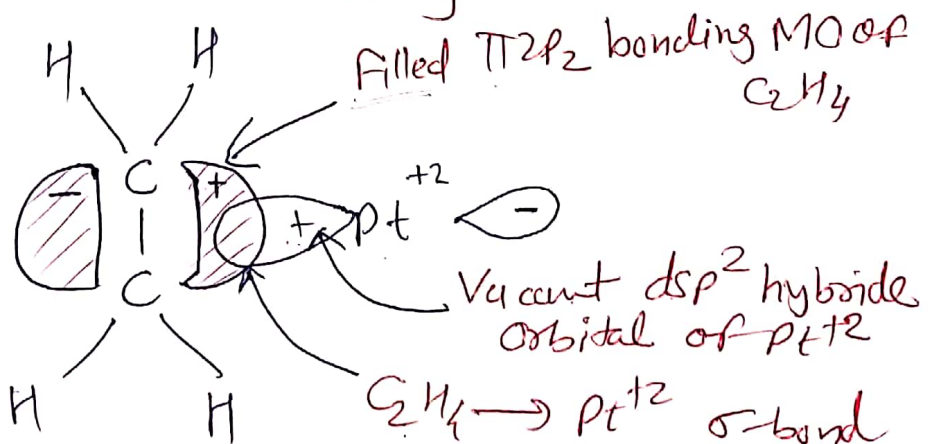 H H
Filled π2P₂ bonding MO of
C₂H₄
C
- +
+ Pt +2 -
C
Vacant dsp² hybride
orbital of Pt+2
H H
C₂H₄ → Pt+2 σ-bond